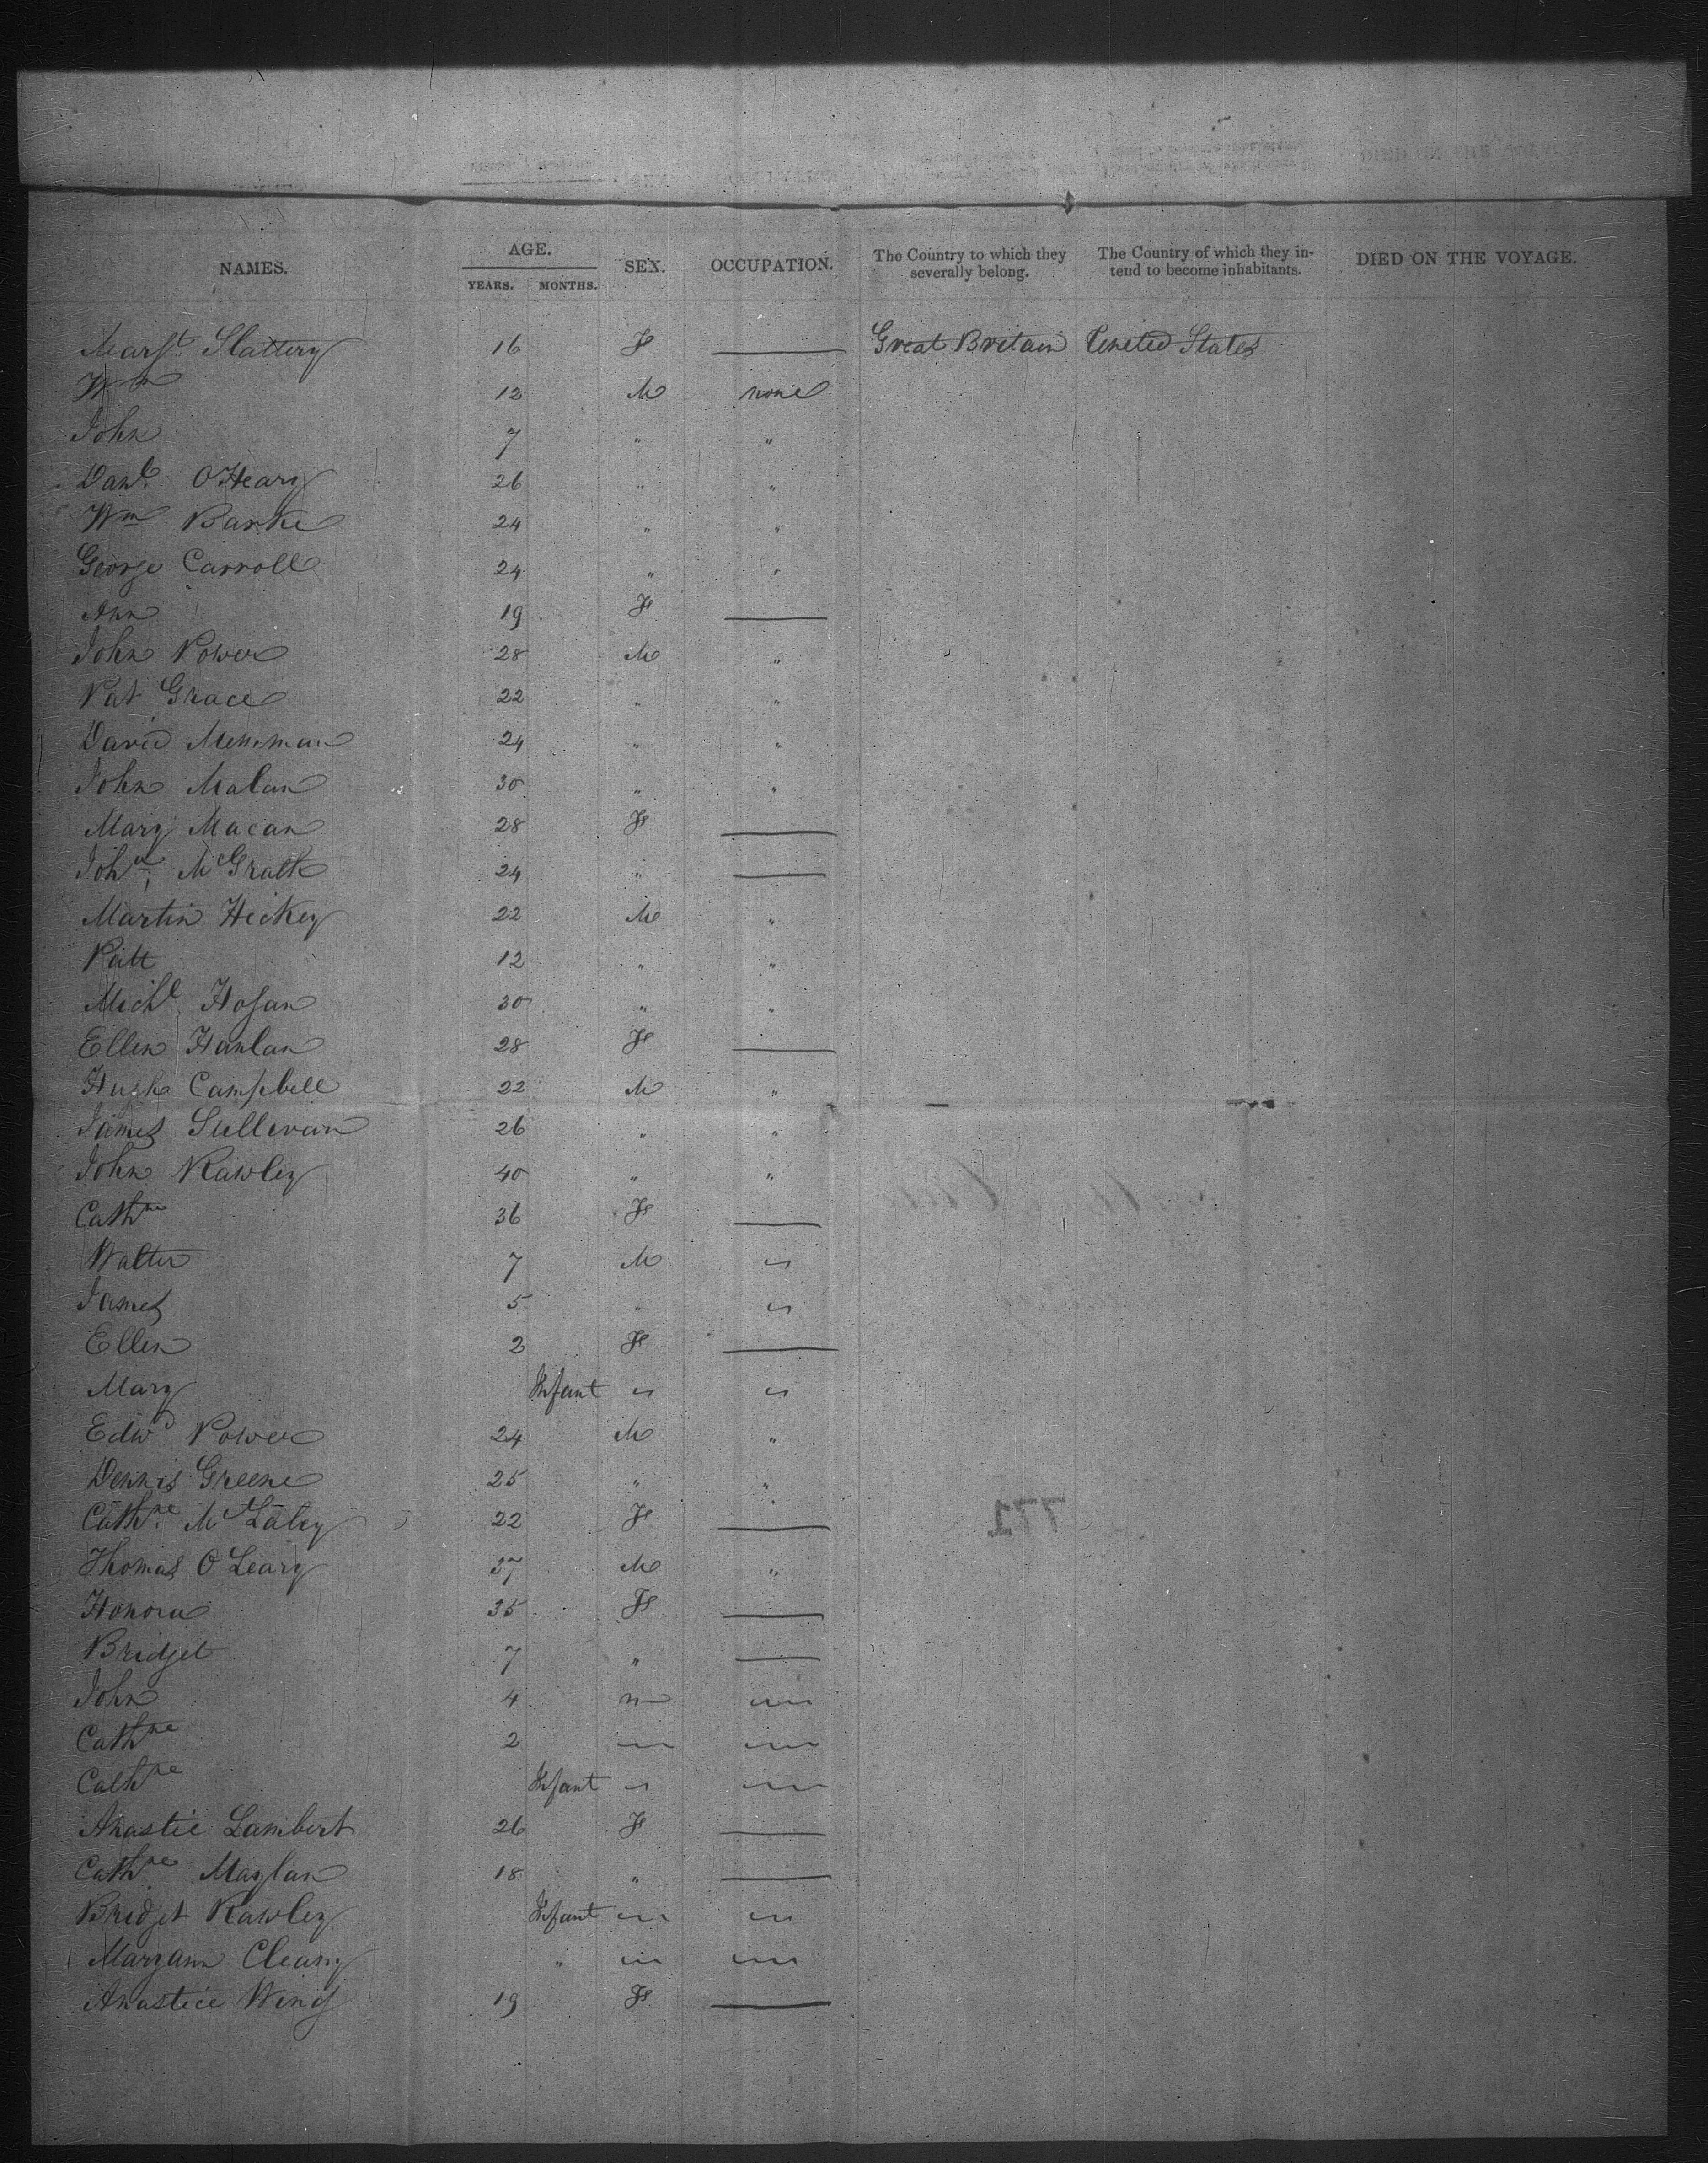 NAMES. AGE. YEARS. MONTHS. SEX. OCCUPATION. The Country to which they severally belong. The Country of which they in-tend to become inhabitants. DIED ON THE VOYAGE.
Margt. Slattery 16 F —— Great Britain United States
Wm 12 M none
John 7 " "
Danl. O'Heary 26 " "
Wm Barke 24 " "
George Carroll 24 " "
Ann 19 F ——
John Power 28 M "
Pat Grace 22 " "
David Merriman 24 " "
John Malan 30 " "
Mary Macan 28 F ——
Joha. McGrath 24 " ——
Martin Hickey 22 M "
Patt 12 " "
Michl. Hogan 30 " "
Ellen Hanlan 28 F ——
Hugh Campbell 22 M "
James Sullivan 26 " "
John Rawley 40 " "
Cathne 36 F ——
Walter 7 M "
James 5 " "
Ellen 2 F ——
Mary Infant " "
Edwd Power 24 M "
Dennis Greene 25 " "
Cathne. Mc 22 F ——
Thomas O'Leary 37 M "
Honora 35 F ——
Bridget 7 " ——
John 4 m "
Cathne 2 " "
Cathne Infant " "
Anastic Lambert 26 F ——
Cathne. Maylan 18 " ——
Bridget Rawley Infant " "
Maryann Cleary " " "
Anastice Wing 19 F ——
771